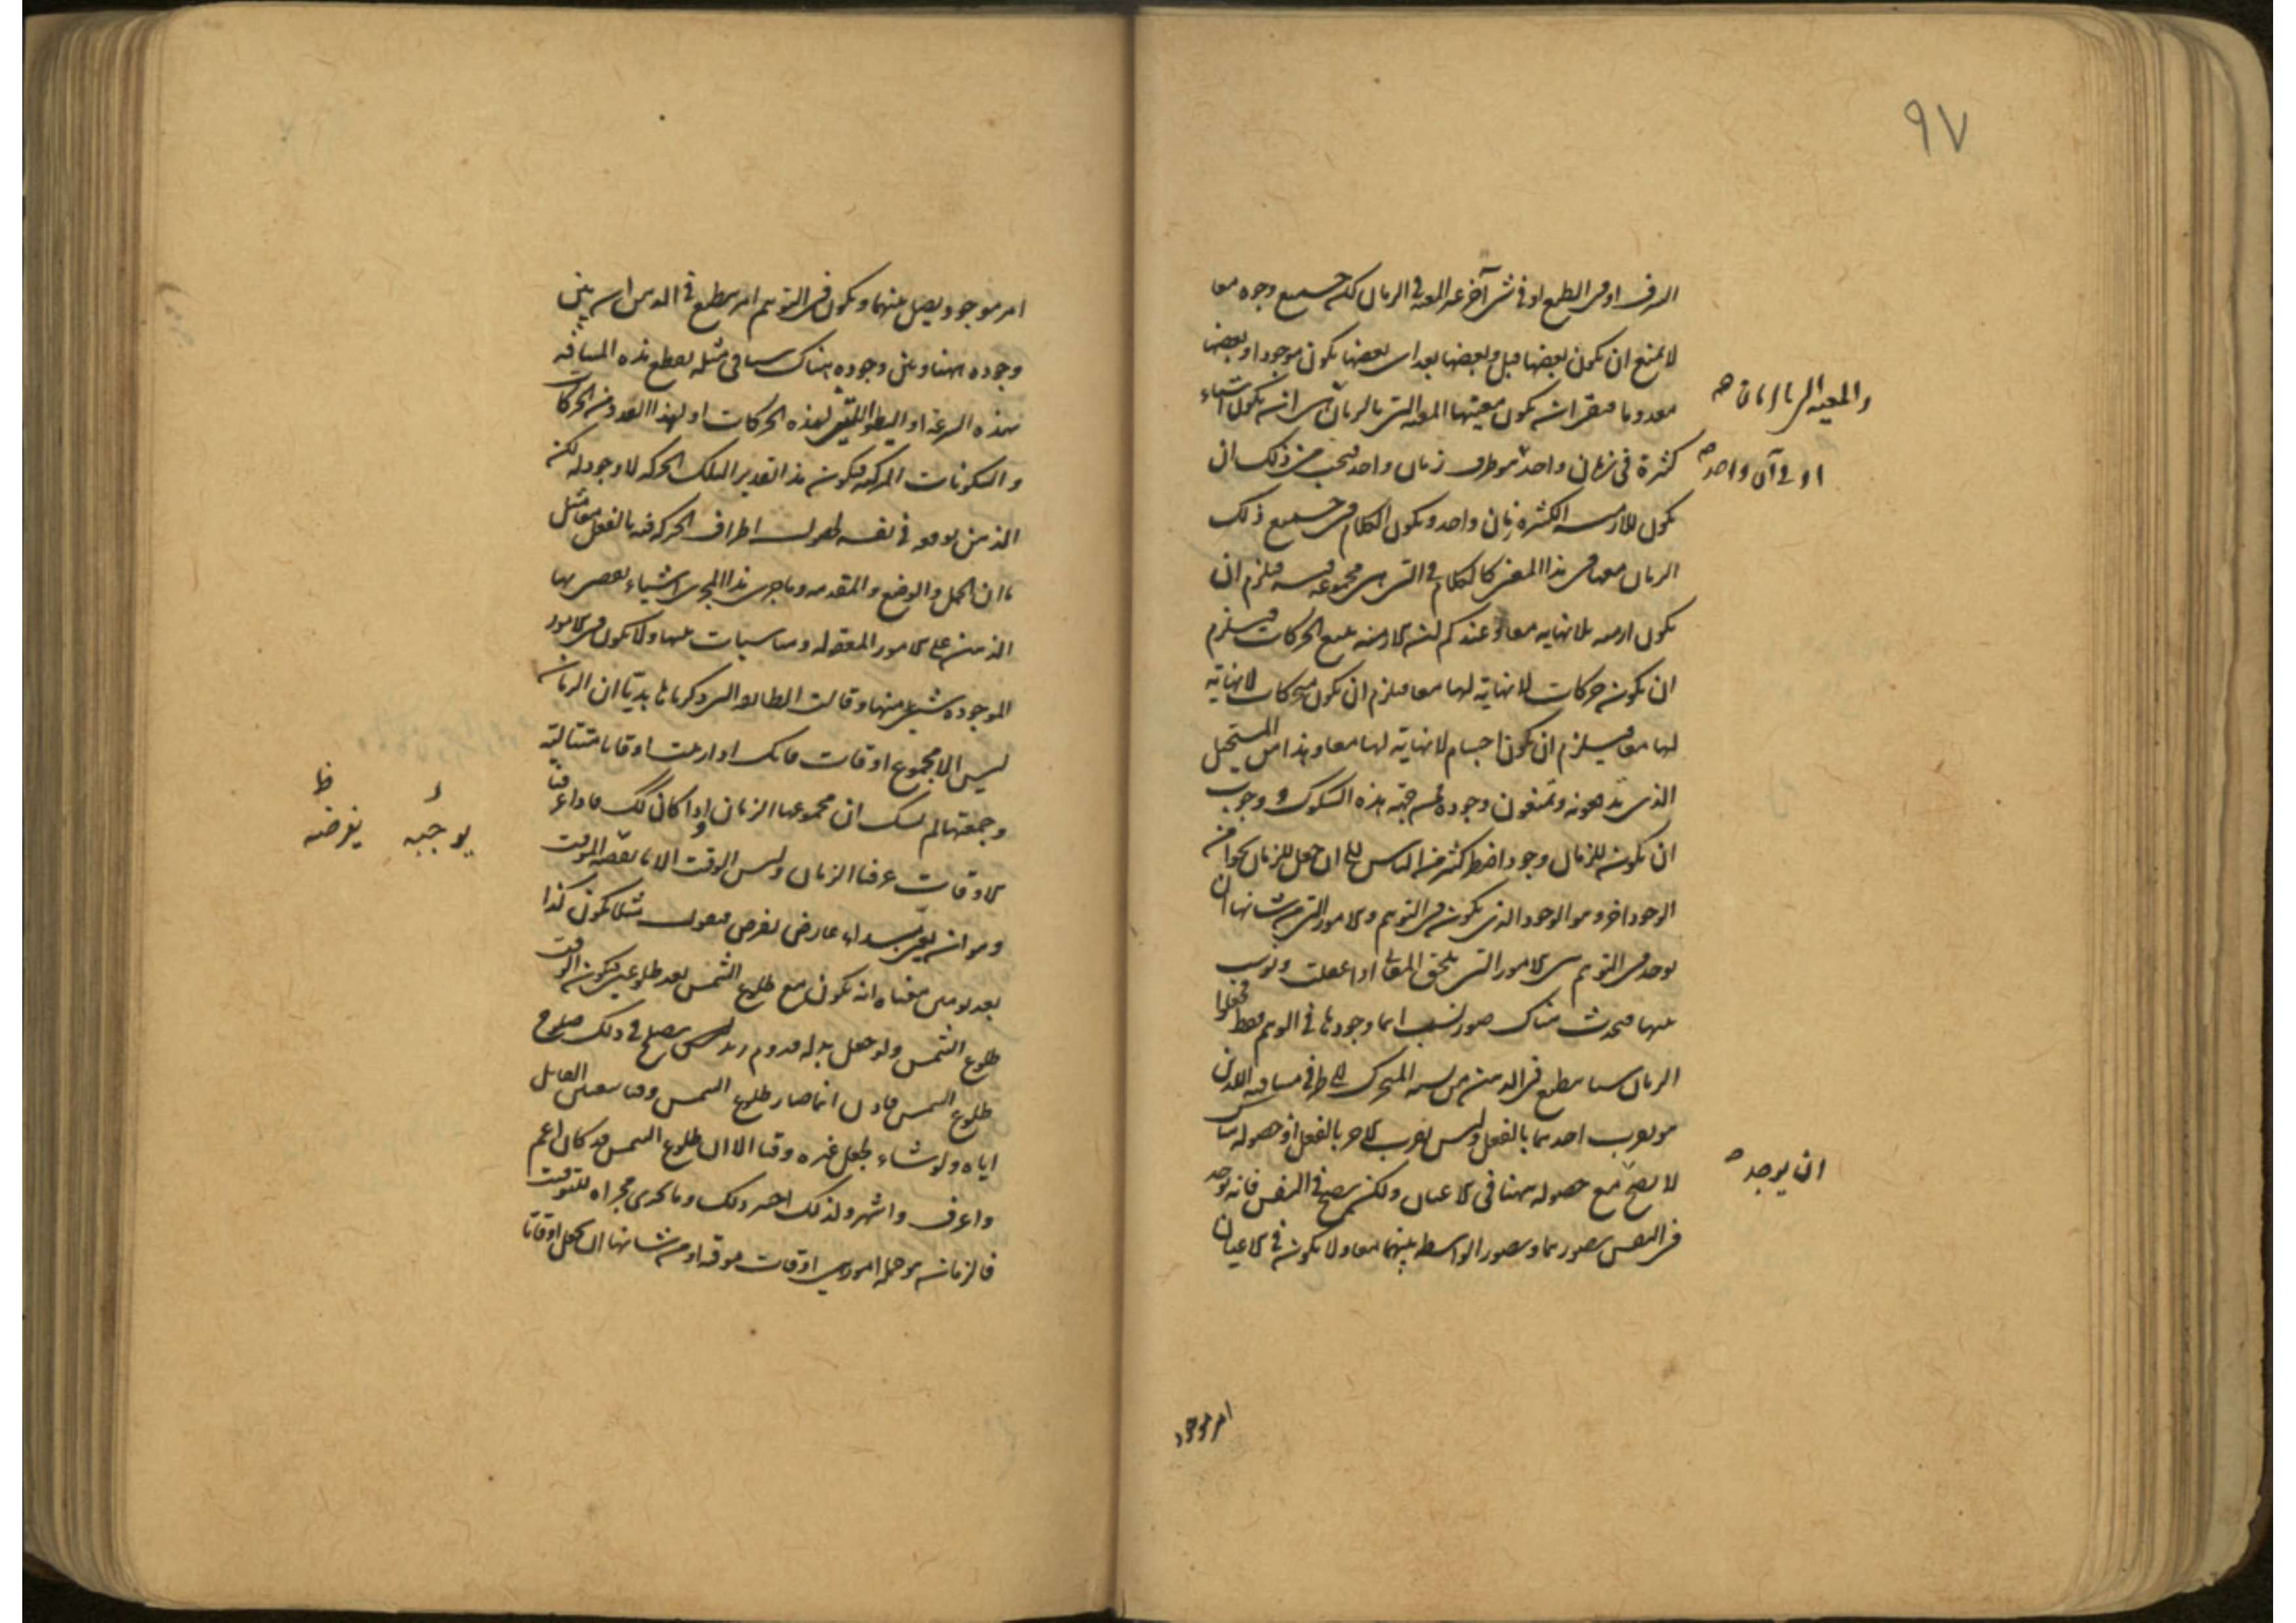 ٩٧
الشرف او فى الطبع او فى شئ آخر غير المعية فى الزمان كل جميع وجوه معا
لا يمنع ان يكون بعضها قبل وبعضها بعد اى بعضها يكون موجودا وبعضها
معدوما فبقى ان يكون معيتها المعية التى بالزمان هى ان يكون اشياء
والمعية التى بالزمان صح
كثيرة فى زمان واحد او طرف زمان واحد فيجب من ذلك ان
او فى آن واحد صح
يكون للازمنة الكثيرة زمان واحد ويكون الكلام فى جميع ذلك
الزمان معها فى هذا المعنى كالكلام فى التى هى مجموعة فيه فيلزم ان
يكون ازمنة بلا نهاية معا وعندكم ان الازمنة تتبع الحركات فيلزم
ان يكون حركات لا نهاية لها معا فيلزم ان يكون متحركات لا نهاية
لها معا فيلزم ان يكون اجسام لا نهاية لها معا وهذا من المستحيل
الذى تدفعونه وتمنعون وجوده فمن جهة هذه الشكوك ووجوب
ان يكون للزمان وجود اضطر كثير من الناس الى ان جعل للزمان نحوا من
الوجود آخر وهو الوجود الذى يكون فى التوهم والامور التى من شانها ان
توجد فى التوهم هى الامور التى تلحق المعانى اذا عقلت ونوسب
بينها فيحدث هناك صور نسب انما وجودها فى الوهم فقط فجعلوا
الزمان شيئا ينطبع فى الذهن من نسبة المتحرك الى طرفى مسافته اللذين
هو بقرب احدهما بالفعل وليس بقرب الآخر بالفعل اذ حصوله هناك
لا يصح مع حصوله ههنا فى الاعيان ولكن يصح فى النفس فانه يوجد
ان يوجد صح
فى النفس تصورهما وتصور الواسطة بينهما معا ولا يكون فى الاعيان
امر موجود
امر موجود يصل بينهما ويكون فى التوهم امر ينطبع فى الذهن ان بين
وجوده ههنا وبين وجوده هناك شيئا فى مثله يقطع هذه المسافة
بهذه السرعة او البطؤ التى لهذه الحركات او لهذا العدد من الحركات
والسكونات المركبة فيكون هذا تقديرا لتلك الحركة لا وجود له لكن
الذهن يوقعه فى نفسه لحصول اطراف الحركة فيه بالفعل معا مثل
ما ان الحمل والوضع والمقدمة وما جرى هذا المجرى اشياء يقضى بها
الذهن على الامور المعقولة ومناسبات بينها ولا يكون فى الامور
الموجودة شئ منها وقالت الطائفة التى ذكرناها بديا ان الزمان
ليس الا مجموع اوقات فانك اذا رتبت اوقاتا متتالية
وجمعتها لم تشك ان مجموعها الزمان واذا كان كك فاذا عرفنا
الاوقات عرفنا الزمان وليس الوقت الا ما يوجبه الموقت
يوجبه يفرضه ظ
وهو ان يعين مبداء عارض يعرض فيقول مثلا يكون كذا
بعد يومين معناه انه يكون مع طلوع الشمس بعد طلوعين فيكون الوقت
طلوع الشمس ولو جعل بدله قدوم زيد لكان يصلح فى ذلك صلوح
طلوع الشمس فاذن انما صار طلوع الشمس وقتا بتعيين القائل
اياه ولو شاء لجعل غيره وقتا الا ان طلوع الشمس قد كان اعم
واعرف واشهر ولذلك اختير ذلك وما يجرى مجراه للتوقيت
فالزمان هو جملة امور هى اوقات موقتة او من شانها ان تجعل اوقاتا